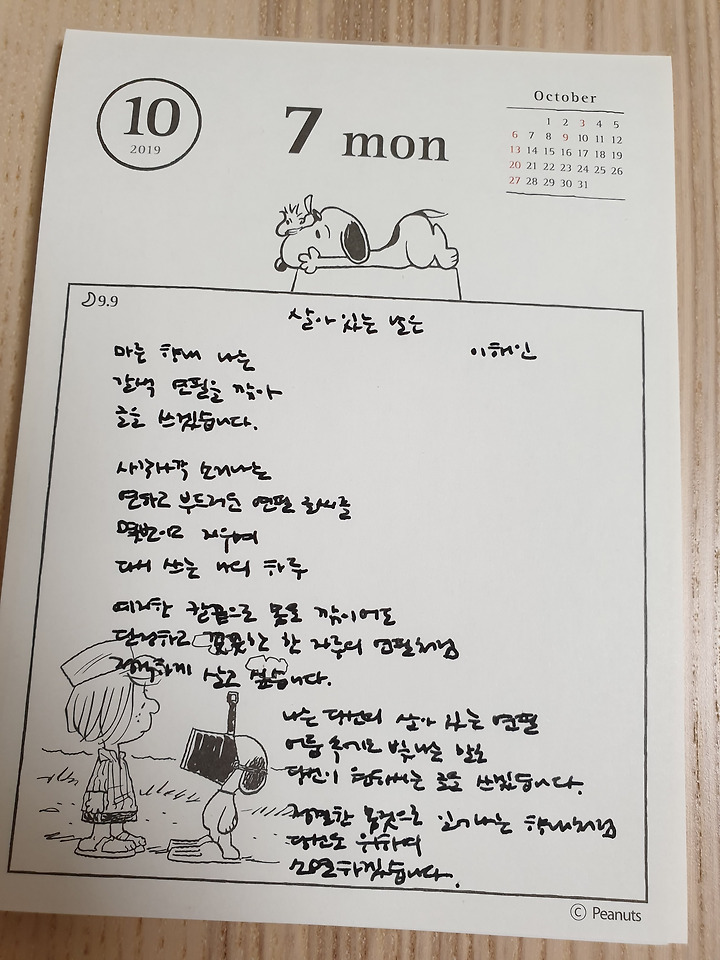 10
2019
7 mon
October
1 2 3 4 5
6 7 8 9 10 11 12
13 14 15 16 17 18 19
20 21 22 23 24 25 26
27 28 29 30 31
9.9
살아 있는 날은
이해인
마른 향내 나는
갈색 연필을 깎아
글을 쓰겠습니다.
사각사각 소리나는
연하고 부드러운 연필 글씨를
몇번이고 지우며
다시 쓰는 나의 하루
예리한 칼끝으로 몸을 깎이어도
단정하고 꼿꼿한 한 자루의 연필처럼
정직하게 살고 싶습니다.
나는 당신의 살아 있는 연필
어둠 속에도 빛나는 말로
당신이 원하시는 글을 쓰겠습니다.
정결한 몸짓으로 일어나는 향내처럼
당신을 위하여
소멸하겠습니다.
© Peanuts